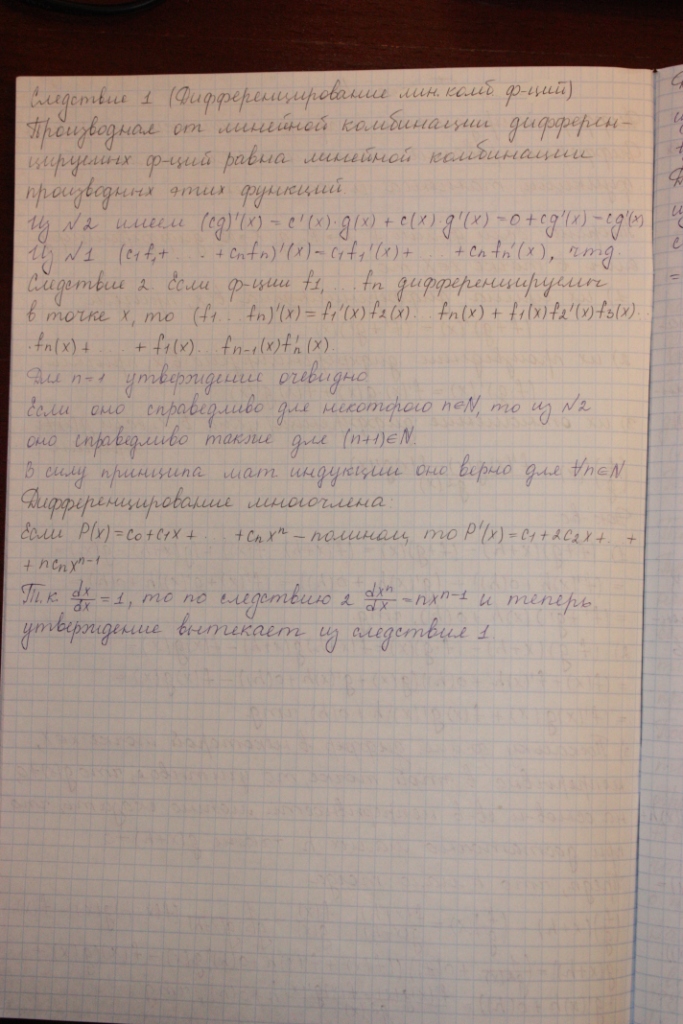 Следствие 1 (Дифференцирование лин. комб ф-ций)
Производная от линейной комбинации дифферен-
цируемых ф-ций равна линейной комбинации
производных этих функций.
Из №2 имеем (cg)'(x) = c'(x)·g(x) + c(x)·g'(x) = 0 + cg'(x) = cg'(x)
Из №1 (c₁f₁ + . . + cₙfₙ)'(x) = c₁f₁'(x) + . . + cₙfₙ'(x), чтд.
Следствие 2. Если ф-ции f₁, . . fₙ дифференцируемы
в точке x, то (f₁ . . fₙ)'(x) = f₁'(x)f₂(x) . . fₙ(x) + f₁(x)f₂'(x)f₃(x) . .
·fₙ(x) + . . + f₁(x) . . fₙ₋₁(x)fₙ'(x).
Для n=1 утверждение очевидно
Если оно справедливо для некоторого n∈N, то из №2
оно справедливо также для (n+1)∈N.
В силу принципа мат индукции оно верно для ∀n∈N
Дифференцирование многочлена.
Если P(x) = c₀ + c₁x + . . + cₙxⁿ – полином, то P'(x) = c₁ + 2c₂x + . . +
+ ncₙxⁿ⁻¹
Т.к dx/dx = 1, то по следствию 2 dxⁿ/dx = nxⁿ⁻¹ и теперь
утверждение вытекает из следствия 1.